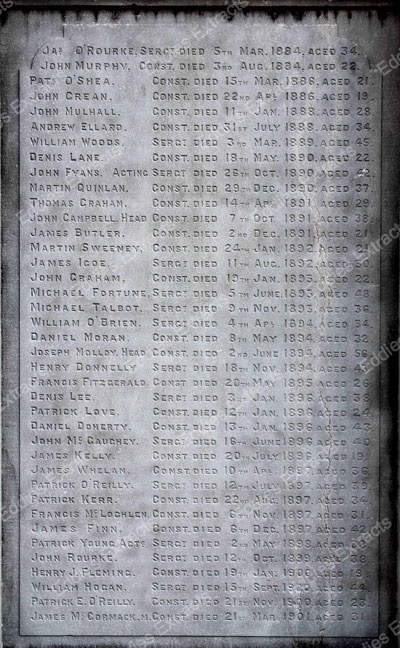 Jas O'Rourke. Sergt died 5th Mar. 1884, aged 34.
John Murphy, Const. died 3rd Aug. 1884, aged 22.
Patk O'Shea, Const. died 15th Mar. 1886, aged 21.
John Crean, Const. died 22nd Apl 1886, aged 19.
John Mulhall, Const. died 11th Jan. 1888, aged 28.
Andrew Ellard, Const. died 31st July 1888, aged 34.
William Woods, Sergt died 3rd Mar. 1889, aged 45.
Denis Lane, Const. died 18th May, 1890, aged 22.
John Fyans, Acting Sergt died 26th Oct. 1890, aged 42.
Martin Quinlan, Const. died 29th Dec. 1890, aged 37.
Thomas Graham, Const. died 14th Apl 1891, aged 29.
John Campbell, Head Const. died 7th Oct. 1891, aged 38.
James Butler, Const. died 2nd Dec. 1891, aged 21.
Martin Sweeney, Const. died 24th Jan. 1892, aged 21.
James Igoe, Sergt died 11th Aug. 1892, aged 50.
John Graham, Const. died 19th Jan. 1893, aged 22.
Michael Fortune, Sergt died 5th June, 1893, aged 43.
Michael Talbot, Sergt died 9th Nov. 1893, aged 36.
William O'Brien, Sergt died 4th Apl 1894, aged 34.
Daniel Moran, Const. died 8th May 1894, aged 32.
Joseph Molloy, Head Const. died 2nd June 1894, aged 56.
Henry Donnelly Sergt died 18th Nov. 1894, aged
Francis Fitzgerald, Const. died 20th May, 1895, aged 26.
Denis Lee, Sergt died 3rd Jan. 1896, aged 38.
Patrick Love, Const. died 12th Jan. 1896, aged 24.
Daniel Doherty, Const. died 13th Jan. 1896, aged 43.
John McGaughey, Sergt died 16th June 1896, aged 40.
James Kelly, Const. died 20th July 1896, aged 19.
James Whelan, Const. died 10th Apl 1897, aged 36.
Patrick O'Reilly, Sergt died 12th July 1897, aged 39.
Patrick Kerr, Const. died 22nd Aug. 1897, aged 34.
Francis McLochlen, Const. died 6th Nov. 1897, aged 31.
James Finn, Const. died 6th Dec. 1897, aged 42.
Patrick Young Actg Sergt died 2nd May 1898, aged
John Rourke, Sergt died 12th Oct. 1899, aged 38.
Henry J. Fleming, Const. died 19th Jany 1900, aged 19.
William Hogan, Sergt died 15th Sept. 1900, aged 44.
Patrick E. O'Reilly, Const. died 21st Nov. 1900, aged
James McCormack, M. Const. died 21st Mar. 1901, aged 31.